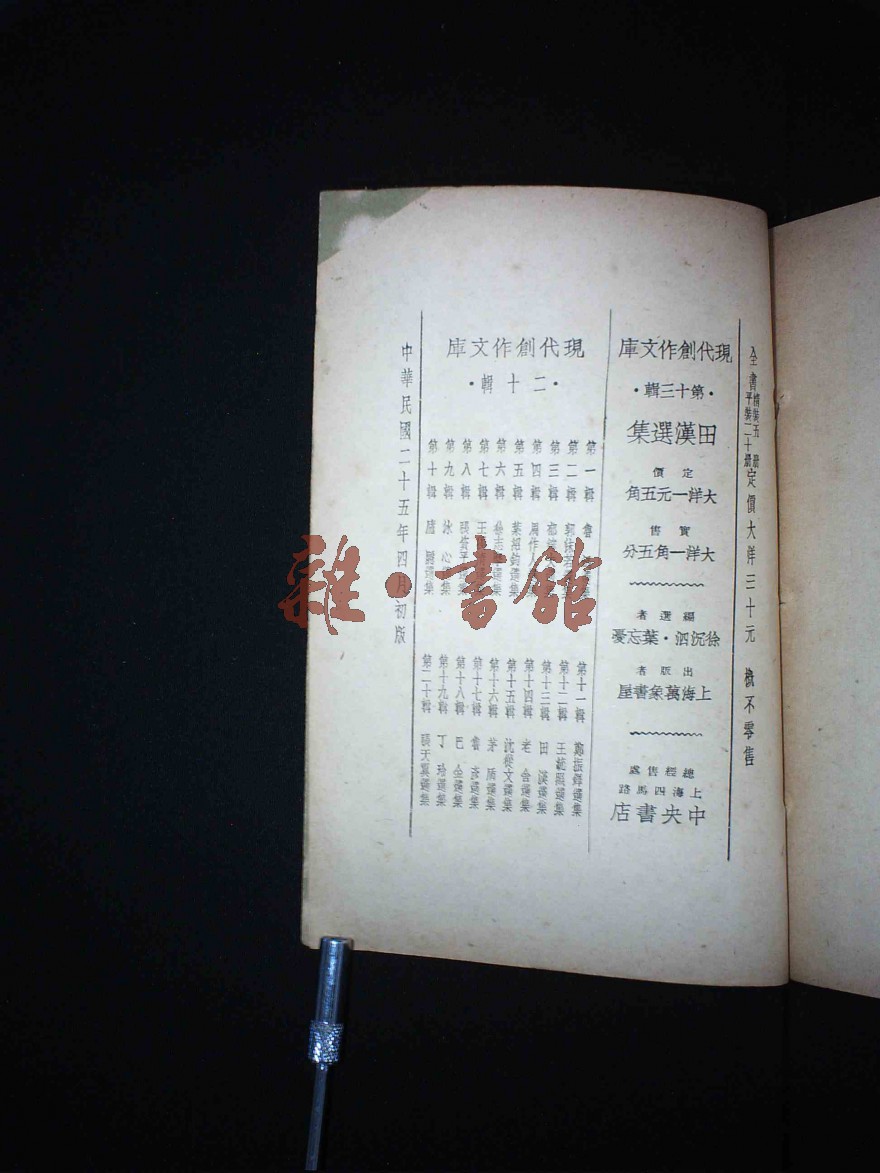 全書精裝五冊平裝二十冊定價大洋三十元 概不零售
現代創作文庫
·第十三輯·
田漢選集
定價
大洋一元五角
實售
大洋一角五分
編選者
徐沉泗·葉忘憂
出版者
上海萬象書屋
總經售處
上海四馬路
中央書店
現代創作文庫
·二十輯·
第一輯 魯
第二輯 郭沫若
第三輯 郁
第四輯 周作人
第五輯 葉紹鈞選集
第六輯 徐志摩選集
第七輯 王
第八輯 張資平選集
第九輯 冰心選集
第十輯 廬隱選集
第十一輯 鄭振鐸選集
第十二輯 王統照選集
第十三輯 田漢選集
第十四輯 老舍選集
第十五輯 沈從文選集
第十六輯 茅盾選集
第十七輯 魯彥選集
第十八輯 巴金選集
第十九輯 丁玲選集
第二十輯 張天翼選集
中華民國二十五年四月初版
雜·書館